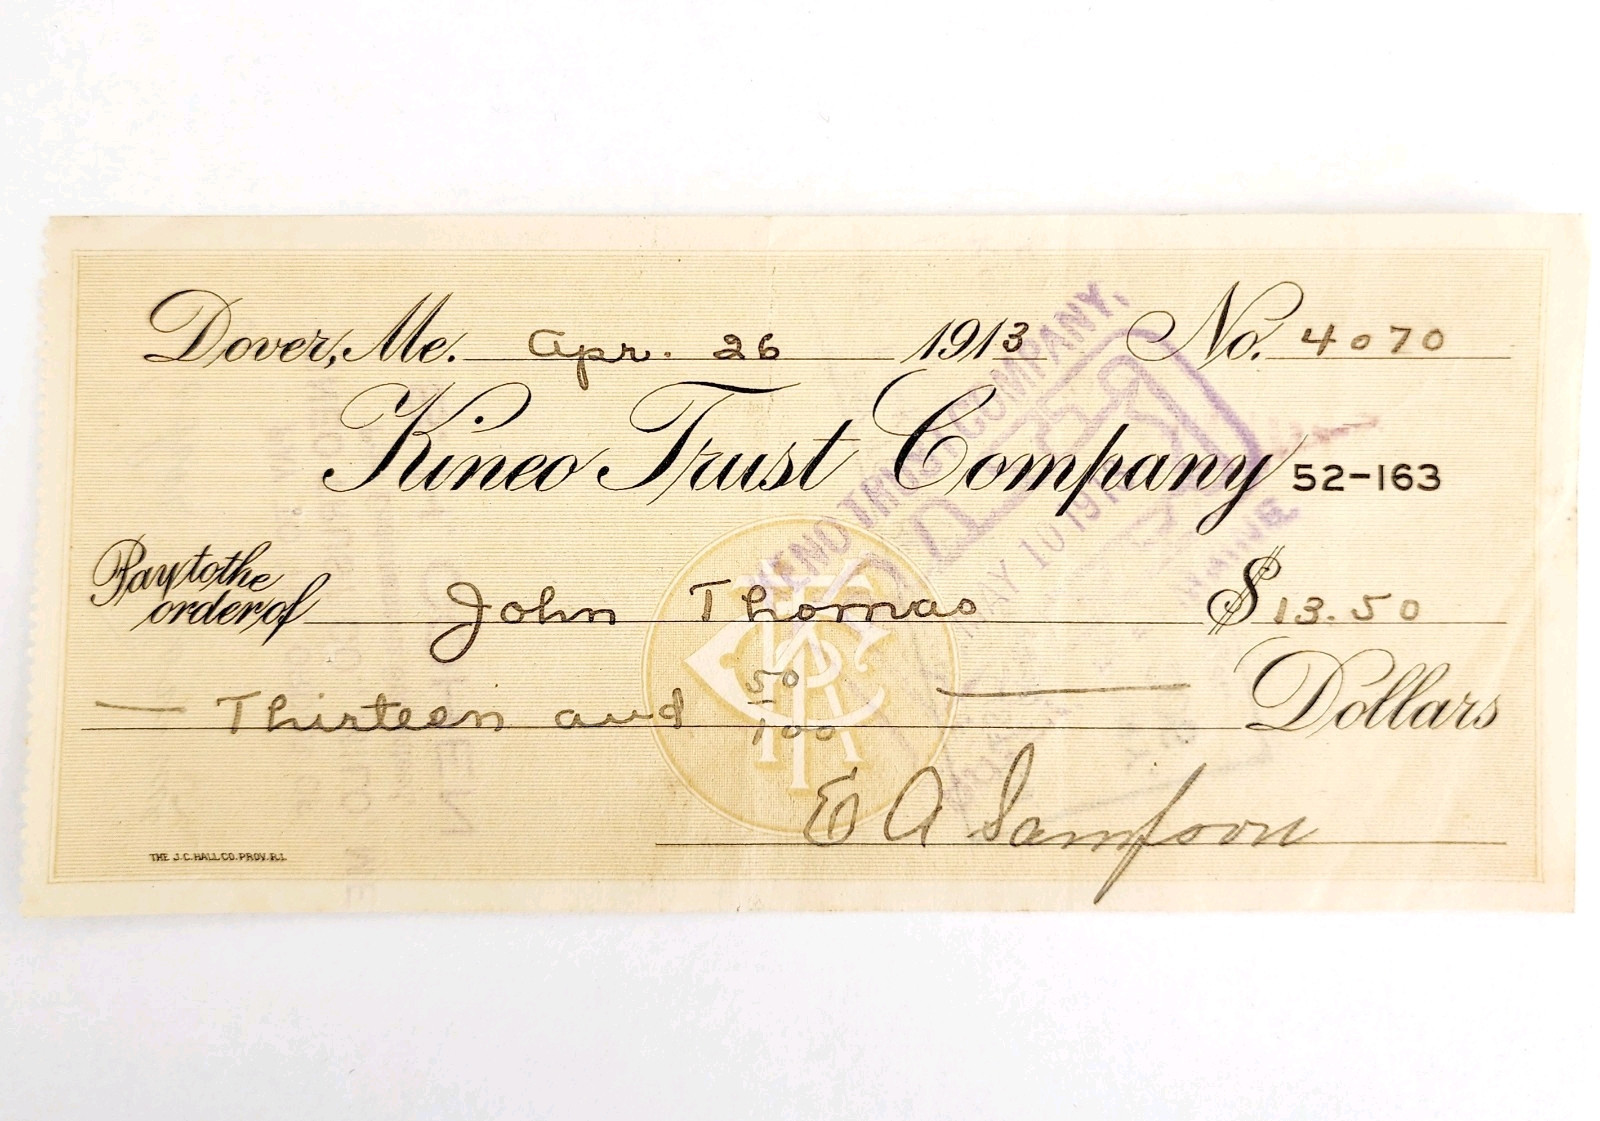 Dover, Me. Apr. 26 1913 No. 4070
Kineo Trust Company 52-163
Pay to the order of John Thomas $13.50
Thirteen and 50/100 Dollars
E A Sampson
THE J.C. HALL CO. PROV. R.I.
TRUST COMPANY,
PAID
MAY 10 191
MAINE